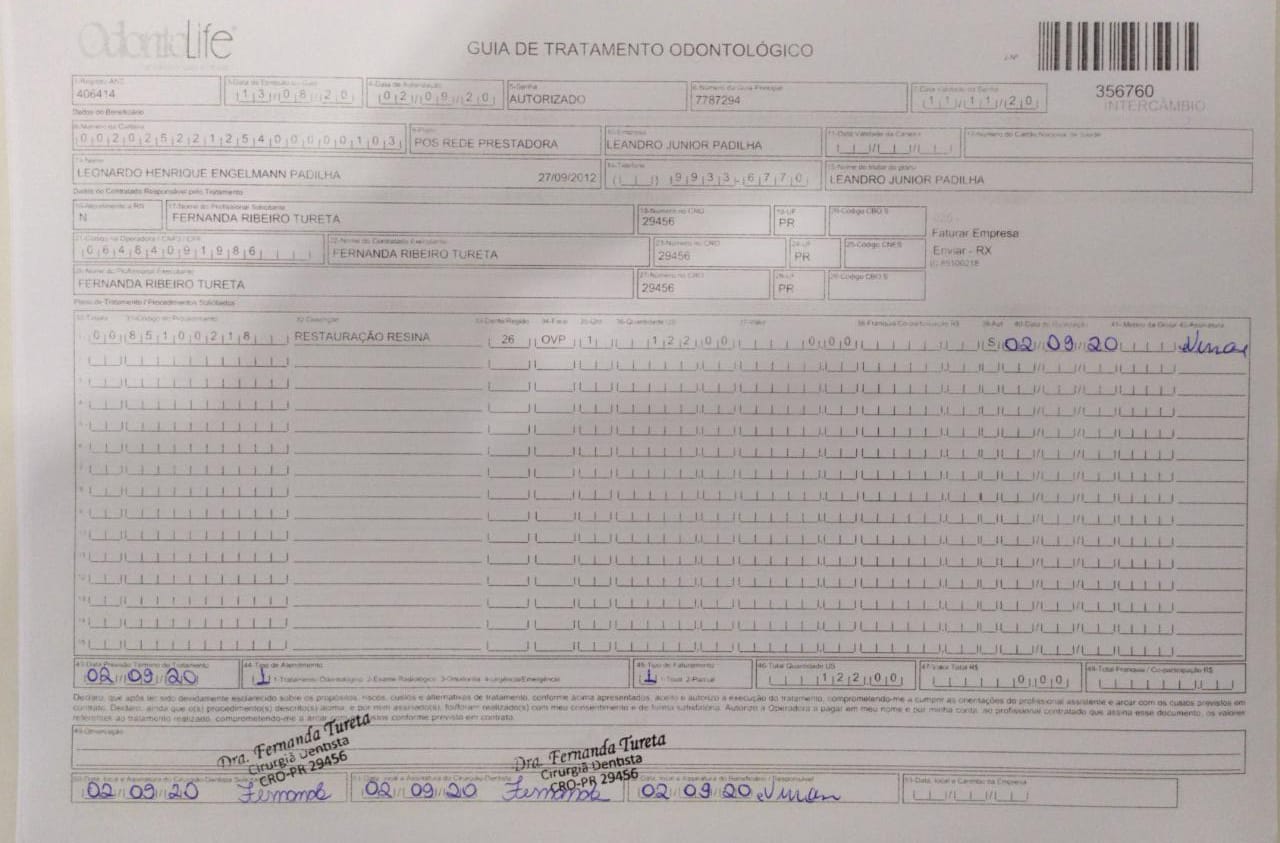 OdontoLife
GUIA DE TRATAMENTO ODONTOLÓGICO
2-Nº
356760
INTERCÂMBIO
1-Registro ANS
406414
3-Data de Emissão da Guia
13/08/20
4-Data de Autorização
02/09/20
5-Senha
AUTORIZADO
6-Número da Guia Principal
7787294
7-Data Validade da Senha
11/11/20
Dados do Beneficiário
8-Número da Carteira
00202522125400000103
9-Plano
POS REDE PRESTADORA
10-Empresa
LEANDRO JUNIOR PADILHA
11-Data Validade da Carteira
12-Número do Cartão Nacional de Saúde
13-Nome
LEONARDO HENRIQUE ENGELMANN PADILHA 27/09/2012
14-Telefone
9933-6770
15-Nome do titular do plano
LEANDRO JUNIOR PADILHA
Dados do Contratado Responsável pelo Tratamento
16-Atendimento a RN
N
17-Nome do Profissional Solicitante
FERNANDA RIBEIRO TURETA
18-Número no CRO
29456
19-UF
PR
20-Código CBO S
Faturar Empresa
Enviar - RX
21-Código na Operadora / CNPJ / CPF
06484091986
22-Nome do Contratado Executante
FERNANDA RIBEIRO TURETA
23-Número no CRO
29456
24-UF
PR
25-Código CNES
26-Nome do Profissional Executante
FERNANDA RIBEIRO TURETA
27-Número no CRO
29456
28-UF
PR
29-Código CBO S
Plano de Tratamento / Procedimentos Solicitados
30-Tabela 31-Código do Procedimento 32-Descrição 33-Dente/Região 34-Face 35-Qtd 36-Quantidade US 37-Valor 38-Franquia/Co-participação R$ 39-Aut 40-Data de Realização 41-Motivo da Glosa 42-Assinatura
00 85100218 RESTAURAÇÃO RESINA 26 OVP 1 122,00 0,00 S 02/09/20
43-Data Previsão Término do Tratamento
02/09/20
44-Tipo de Atendimento
1 1-Tratamento Odontológico 2-Exame Radiológico 3-Ortodontia 4-Urgência/Emergência
45-Tipo de Faturamento
1 1-Total 2-Parcial
46-Total Quantidade US
122,00
47-Valor Total R$
0,00
48-Total Franquia / Co-participação R$
Declaro, que após ter sido devidamente esclarecido sobre os propósitos, riscos, custos e alternativas de tratamento, conforme acima apresentados, aceito e autorizo a execução do tratamento, comprometendo-me a cumprir as orientações do profissional assistente e arcar com os custos previstos em
contrato. Declaro, ainda que o(s) procedimento(s) descrito(s) acima, e por mim assinado(s), foi/foram realizado(s) com meu consentimento e de forma satisfatória. Autorizo a Operadora a pagar em meu nome e por minha conta, ao profissional contratado que assina esse documento, os valores
referentes ao tratamento realizado, comprometendo-me a arcar conforme previsto em contrato.
49-Observação
Dra. Fernanda Tureta
Cirurgiã Dentista
CRO-PR 29456
Dra. Fernanda Tureta
Cirurgiã Dentista
CRO-PR 29456
50-Data, local e Assinatura do Cirurgião-Dentista
02/09/20 Fernanda
51-Data, local e Assinatura do Cirurgião-Dentista
02/09/20 Fernanda
52-Data, local e Assinatura do Beneficiário / Responsável
02/09/20
53-Data, local e Carimbo da Empresa